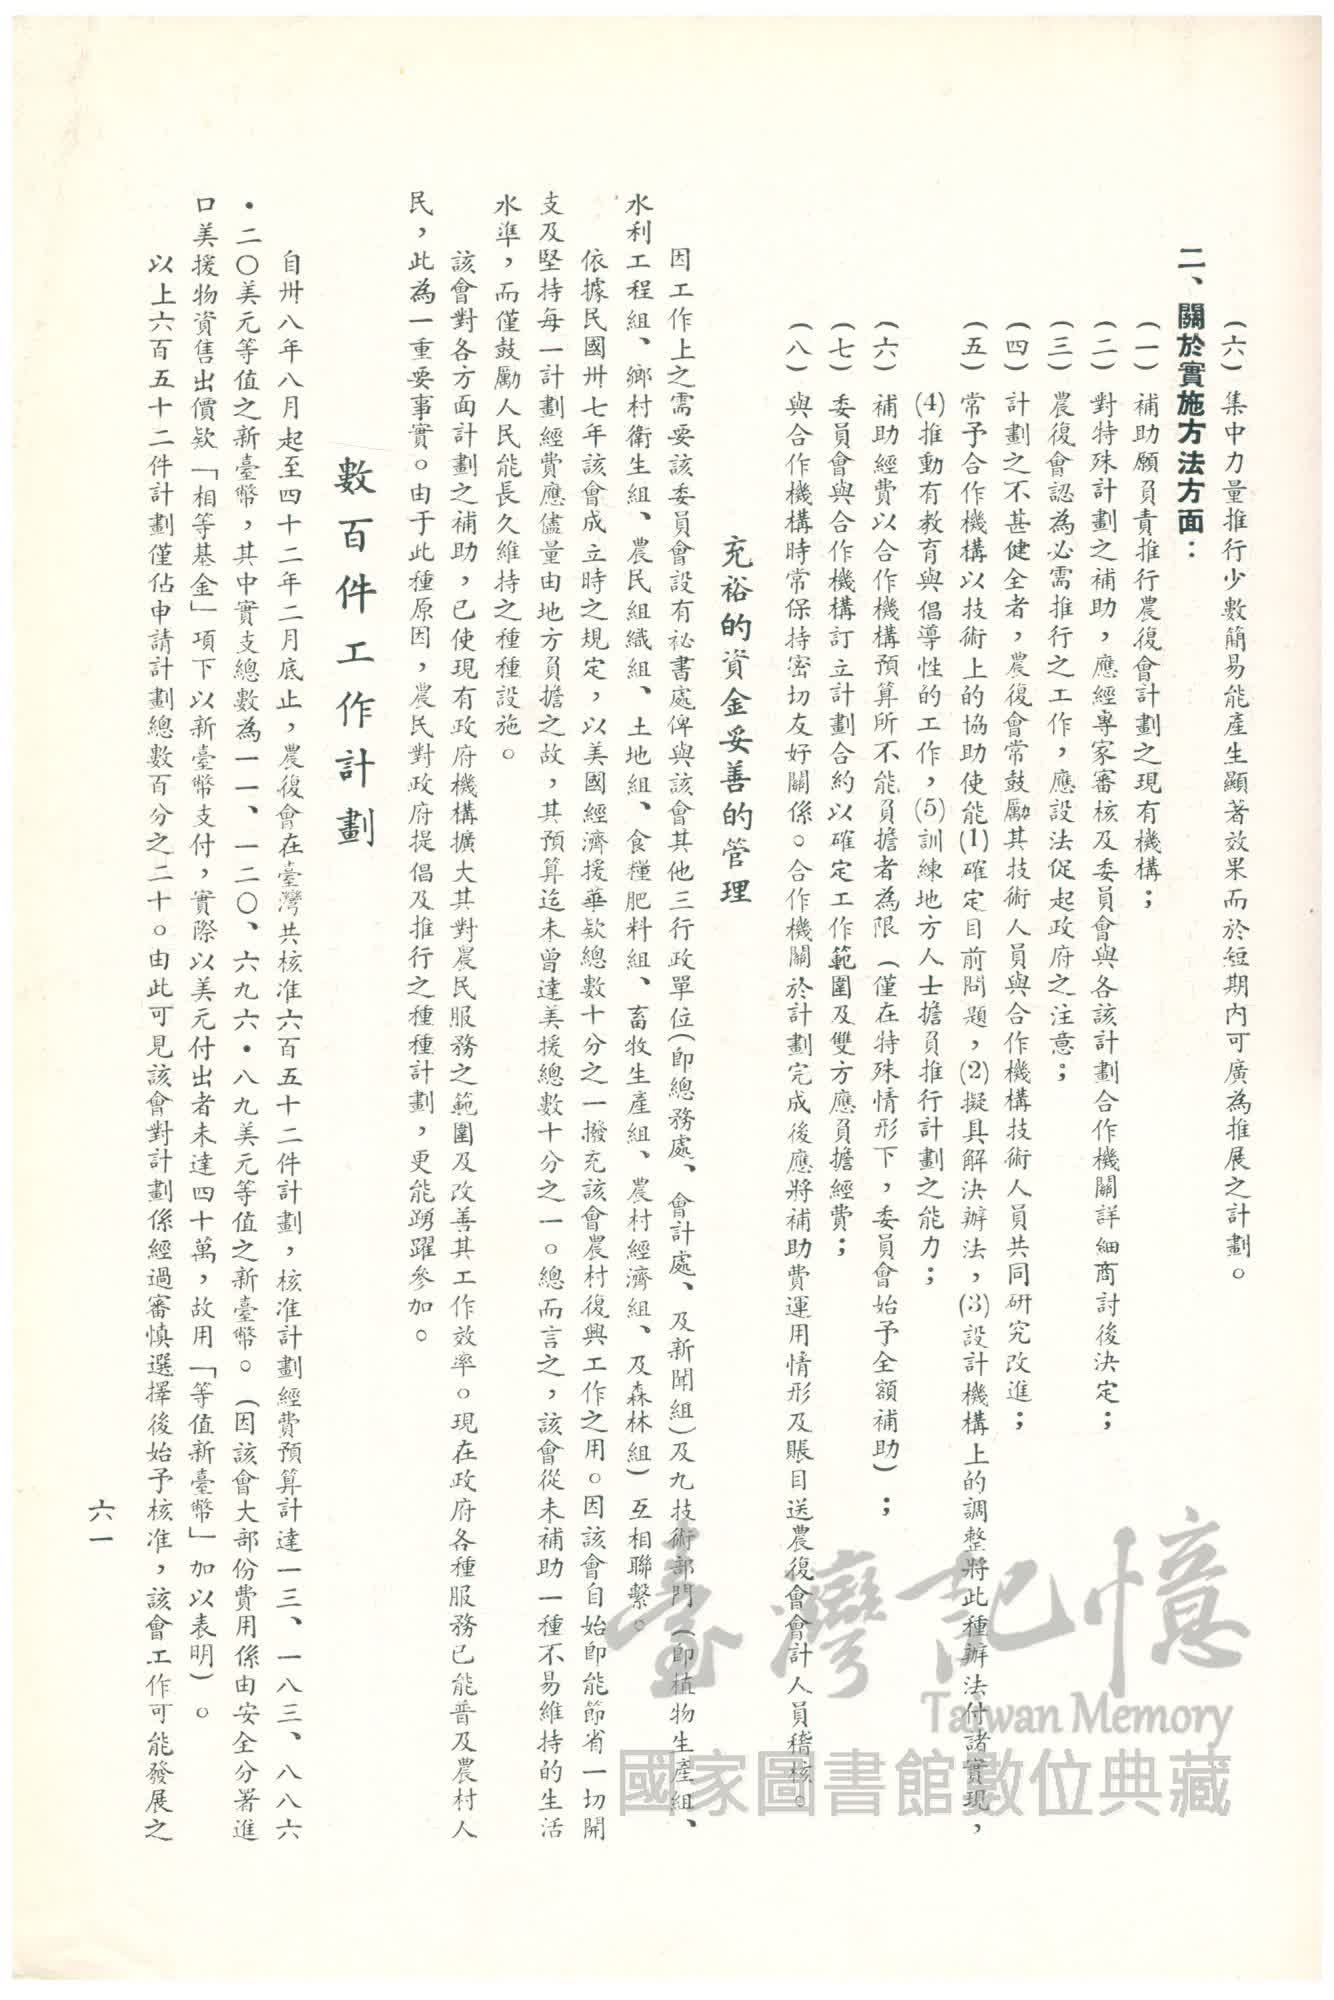 (六)集中力量推行少數簡易能產生顯著效果而於短期內可廣為推展之計劃。
二、關於實施方法方面：
(一)補助願負責推行農復會計劃之現有機構；
(二)對特殊計劃之補助，應經專家審核及委員會與各該計劃合作機關詳細商討後決定；
(三)農復會認為必需推行之工作，應設法促起政府之注意；
(四)計劃之不甚健全者，農復會常鼓勵其技術人員與合作機構技術人員共同研究改進；
(五)常予合作機構以技術上的協助使能(1)確定目前問題，(2)擬具解決辦法，(3)設計機構上的調整將此種辦法付諸實現，
(4)推動有教育與倡導性的工作，(5)訓練地方人士擔負推行計劃之能力；
(六)補助經費以合作機構預算所不能負擔者為限(僅在特殊情形下，委員會始予全額補助)；
(七)委員會與合作機構訂立計劃合約以確定工作範圍及雙方應負擔經費；
(八)與合作機構時常保持密切友好關係。合作機關於計劃完成後應將補助費運用情形及賬目送農復會會計人員稽核。
充裕的資金妥善的管理
因工作上之需要該委員會設有祕書處俾與該會其他三行政單位(即總務處、會計處、及新聞組)及九技術部門(即植物生產組、
水利工程組、鄉村衛生組、農民組織組、土地組、食糧肥料組、畜牧生產組、農村經濟組、及森林組)互相聯繫。
依據民國卅七年該會成立時之規定，以美國經濟援華欵總數十分之一撥充該會農村復興工作之用。因該會自始即能節省一切開
支及堅持每一計劃經費應儘量由地方負擔之故，其預算迄未曾達美援總數十分之一。總而言之，該會從未補助一種不易維持的生活
水準，而僅鼓勵人民能長久維持之種種設施。
該會對各方面計劃之補助，已使現有政府機構擴大其對農民服務之範圍及改善其工作效率。現在政府各種服務已能普及農村人
民，此為一重要事實。由于此種原因，農民對政府提倡及推行之種種計劃，更能踴躍參加。
數百件工作計劃
自卅八年八月起至四十二年二月底止，農復會在臺灣共核准六百五十二件計劃，核准計劃經費預算計達一三、一八三、八八六
•二〇美元等值之新臺幣，其中實支總數為一一、一二〇、六九六•八九美元等值之新臺幣。(因該會大部份費用係由安全分署進
口美援物資售出價欵「相等基金」項下以新臺幣支付，實際以美元付出者未達四十萬，故用「等值新臺幣」加以表明)。
以上六百五十二件計劃僅佔申請計劃總數百分之二十。由此可見該會對計劃係經過審慎選擇後始予核准，該會工作可能發展之
六一
臺灣記憶
Taiwan Memory
國家圖書館數位典藏